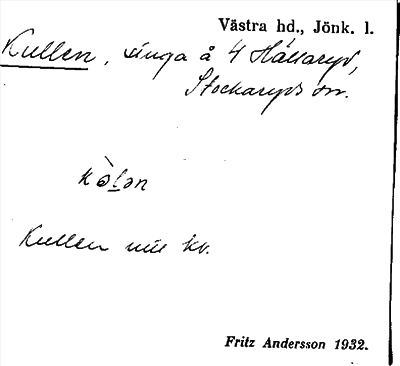 Västra hd., Jönk. l.
Kullen, å 4 Hållaryd,
Stockaryds sn.
Kullen kv.
Fritz Andersson 1932.